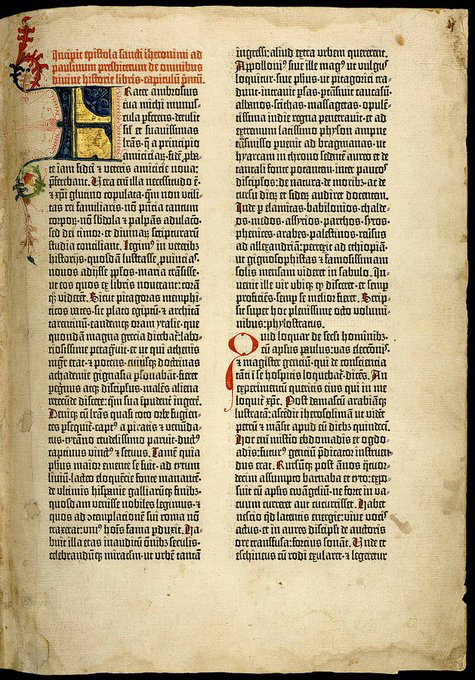 Incipit epistola sancti iheronimi ad
paulinum presbiterum de omnibus
divine historie libris · capitulū pmū.
Frater ambrosius
tua michi munus-
cula pferens · detulit
sił et suavissimas
lrās · q̄ a principio
amiciciaꝝ · fidē pba-
te iam fidei ⁊ veteris amicicie nova:
pferebant. Vera eni illa necessitudo ē ·
⁊ xp̄i glutino copulata · qm̄ non utili-
tas rei familiaris · nō pn̄cia tantum
corpoꝝ · nō sbdola ⁊ palpās adulacō ·
sed dei timor · et divinaꝝ scripturarū
studia conciliant. Legim⁹ in veterib⁹
historijs · quosdā lustrasse puincias ·
novos adijsse pplos · maria trāsisse ·
ut eos quos ex libris noverant: corā
q̄ʒ viderēt. Sicut pitagoras memphi-
ticos vates · sic plato egiptū · ⁊ architā
tarentinū · eandemq̄ʒ oram ytalie · que
quondā magna grecia dicebat̄: labo-
riosissime pegravit · et ut qui athenis
mḡr erat · ⁊ potens · cuiusq̄ʒ doctrinas
achademie gignasia psonabāt · fieret
pegrinus atq̄ʒ discipulus · malēs aliena
verecunde discere: qm̄ sua īpudent̄ ingerere.
Deniq̄ʒ cū lrās quasi toto orbe fugien-
tes psequit̄ · capt⁹ a piratis ⁊ venūda-
tus · tyrāno crudelissimo paruit · duct⁹
captivus vinct⁹ ⁊ servus. Tamē quia
phūs maior emente se fuit · ad tytum
liviū · lacteo eloquentie fonte manantē ·
de ultimis hispanie galliarūq̄ʒ finib⁹ ·
quosdam venisse nobiles legimus · et
quos ad contemplationē sui roma nō
traxerat: uni⁹ hoīs fama pduxit. Ha-
buit illa etas inauditū oīnib⁹ seculis ·
celebrandūq̄ʒ miraclm̄ · ut urbē tantā
ingressi: aliud extra urbem quererent.
Apolloni⁹ sive ille mag⁹ ut vulgus
loquitur · sive phūs · ut pitagorici tra-
dunt · intravit psas · ptrāsivit caucasū ·
albanos · scithas · massagetas · opulē-
tissima indie regna penetravit · et ad
extremum latissimo phison ampne
trāsmisso puenit ad bragmanas · ut
hyarcam in throno sedentē aureo et de
tantali fonte potantem · inter paucos
discipłos · de natura · de moribꝫ ac de
cursu dierꝫ et siderꝫ audiret docentem.
Inde p elamitas · babilonios · chalde-
os · medos · assyrios · parthos · syros ·
phenices · arabes · palestinos · reūsus
ad allexandriā: perrexit ad ethiopiā ·
ut gignosophistas ⁊ famosissimam
solis mensam videret in sabulo. In-
venit ille vir ubiqꝫ q̄ disceret · et semp
proficiens · semp se melior fieret. Scrip-
sit super hoc plenissime octo volumi-
nibus: phylostratus.
Quid loquar de secli hominibꝫ
cū apłus paulus: vas electōnis ·
⁊ magister gentiū · qui de consciencia
tāti ī se hospicis loquebat̄ · dicēs. An
experimentū queritis eius qui in me
loquit̄ xp̄c. Post damascū arabiāqꝫ
lustratā: ascēdit iherosolimā ut vidēt
petrū ⁊ māsit apud eū diebꝫ quindeci.
Hoc eni misterio ebdomadis et ogdo-
adis: futur⁹ genciū p̄dicator instruen-
dus erat. Rursūqꝫ post ānos q̄tuor-
decim assumpto barnaba et tyto: expo-
suit cū apłis euāgeliū · ne forte in va-
cuum curreret aut cucurrisset. Habet
nescio qd̄ latentis energie: vive voci⁹
actus · et in aures discipłi de auctoris
ore transfusa: forcius sonat. Unde et
eschineus cū rodi exularet · ⁊ legeretur